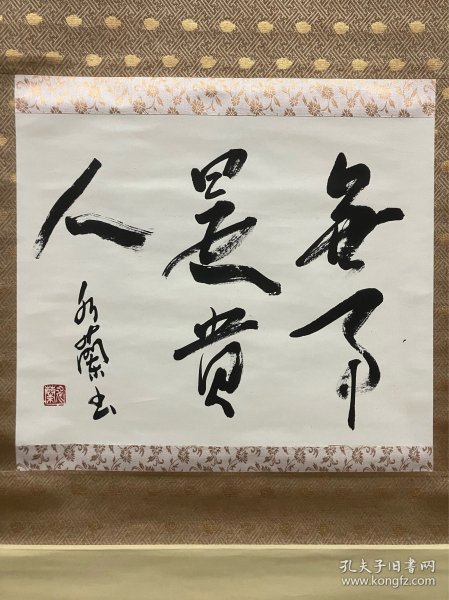 無事
是貴
人
蘭書
孔夫子旧书网
www.kongfz.com